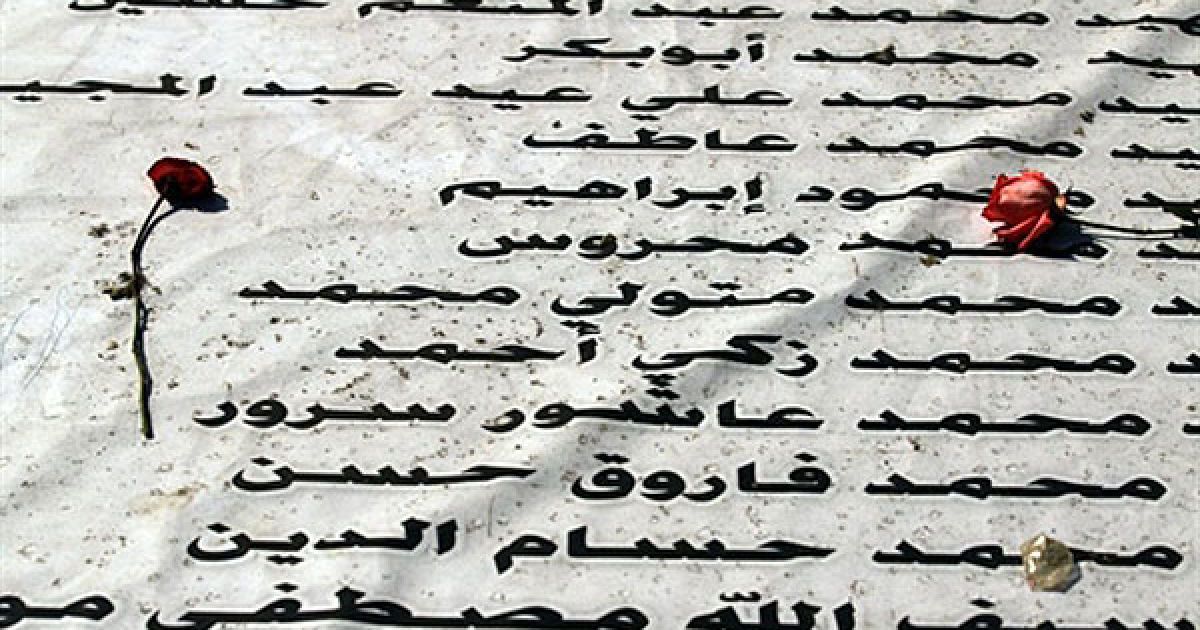 محمد عبد المنعم حسين
محمد أبوبكر
محمد علي عيد عبد المجيد
محمد عاطف
محمود إبراهيم
محمد محروس
محمد متولي محمد
محمد زكي أحمد
محمد عاشور سرور
محمد فاروق حسن
محمد حسام الدين
سيف الله مصطفى